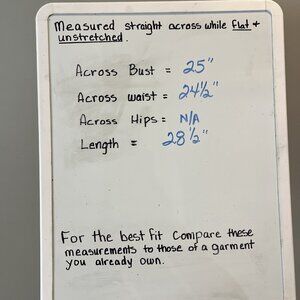 Measured straight across while flat +
unstretched.
Across Bust = 25"
Across waist = 24½"
Across Hips = N/A
Length = 28½"
For the best fit Compare these
measurements to those of a garment
you already own.